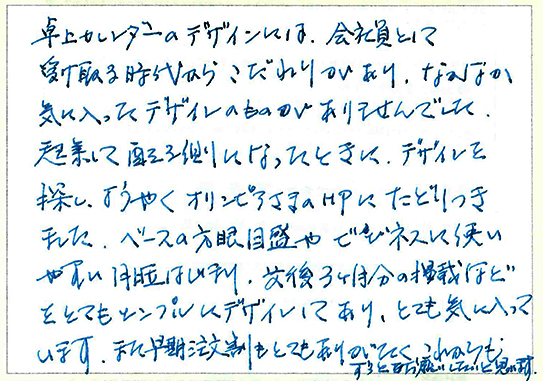 卓上カレンダーのデザインには、会社員として
受け取る時代から こだわりがあり、なかなか
気に入ったデザインのものがありませんでした.
起業して配る側になったときに、デザインを
探し、ようやく オリンピアさまのHPに たどりつき
ました、ベースの方眼目盛や ビジネスに使い
やすい 月曜はじまり、前後3ヶ月分の掲載など
をとてもシンプルにデザインしてあり、とても気に入って
います. また早期注文割もとてもありがたく これからも
ずっとお願いしたいと思います.